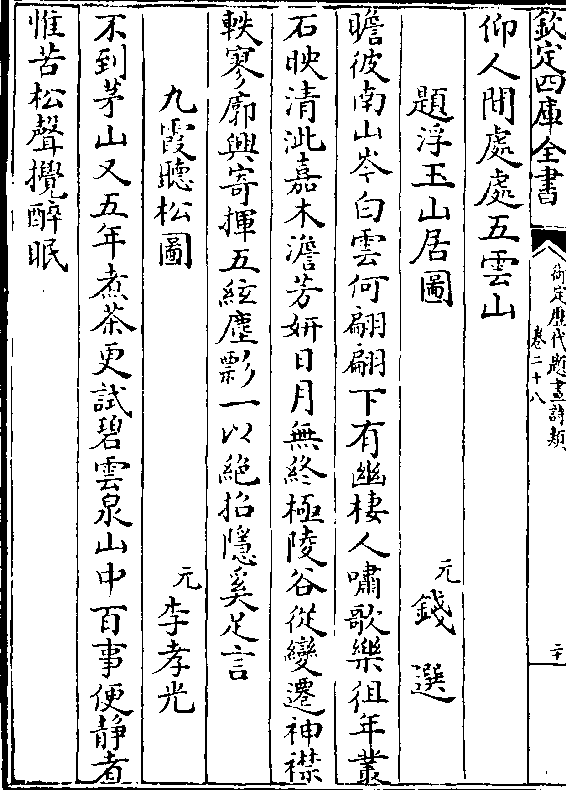 欽定四庫全書
御定歷代題畫詩類
卷二十八
二十
仰人間處處五雲山
題浮玉山居圖
元 錢選
瞻彼南山岑白雲何翩翩下有幽棲人嘯歌樂徂年叢
石映清泚嘉木澹芳妍日月無終極陵谷從變遷神襟
軼寥廓興寄揮五絃塵影一以絶招隱奚足言
九霞聽松圖
元 李孝光
不到茅山又五年煮茶更試碧雲泉山中百事便静者
惟苦松聲攪醉眠